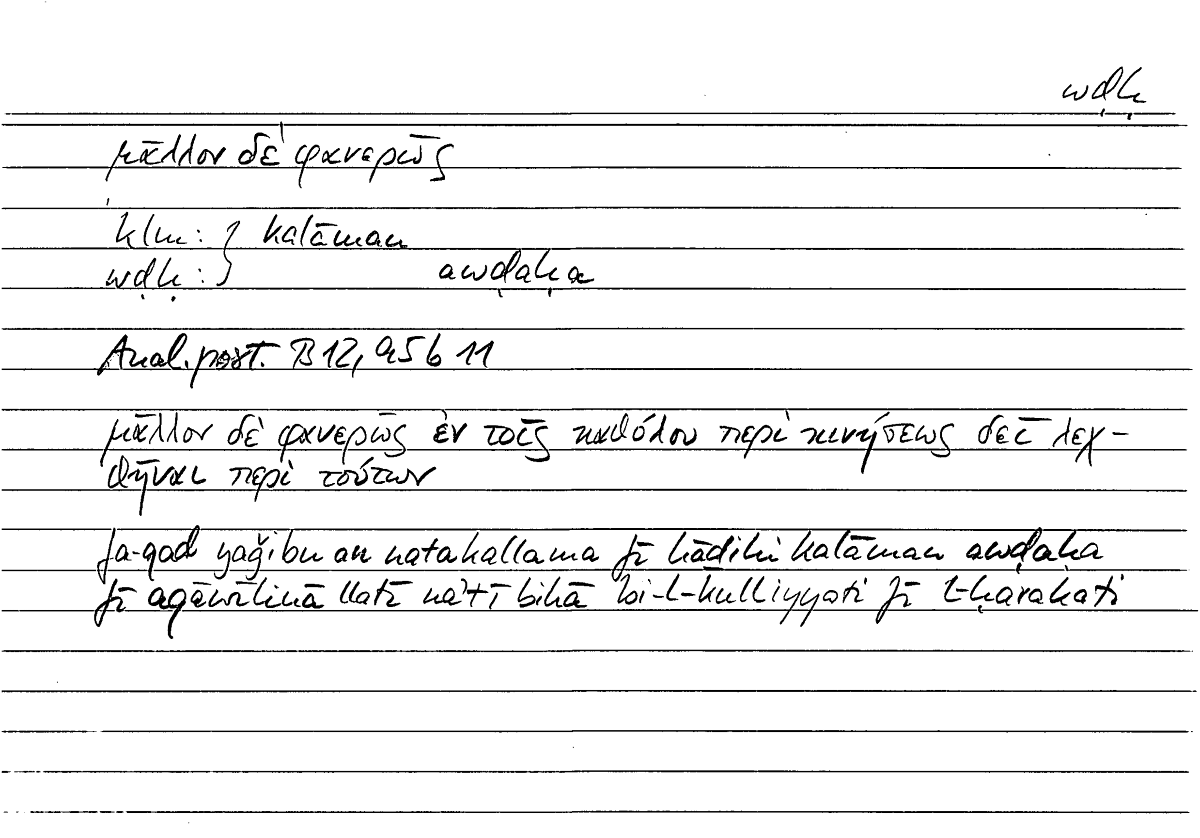 wḍḥ
μᾶλλον δὲ φανερῶς
klm: } kalāman
wḍḥ: } awḍaḥa
Anal. post. B 12, 95 b 11
μᾶλλον δὲ φανερῶς ἐν τοῖς καθόλου περὶ κινήσεως δεῖ λεχ-
θῆναι περὶ τούτων
fa-qad yaǧibu an natakallama fī hāḏihi kalāman awḍaḥa
fī aqāwīlinā llatī na'tī bihā bi-l-kulliyyati fī l-ḥarakati